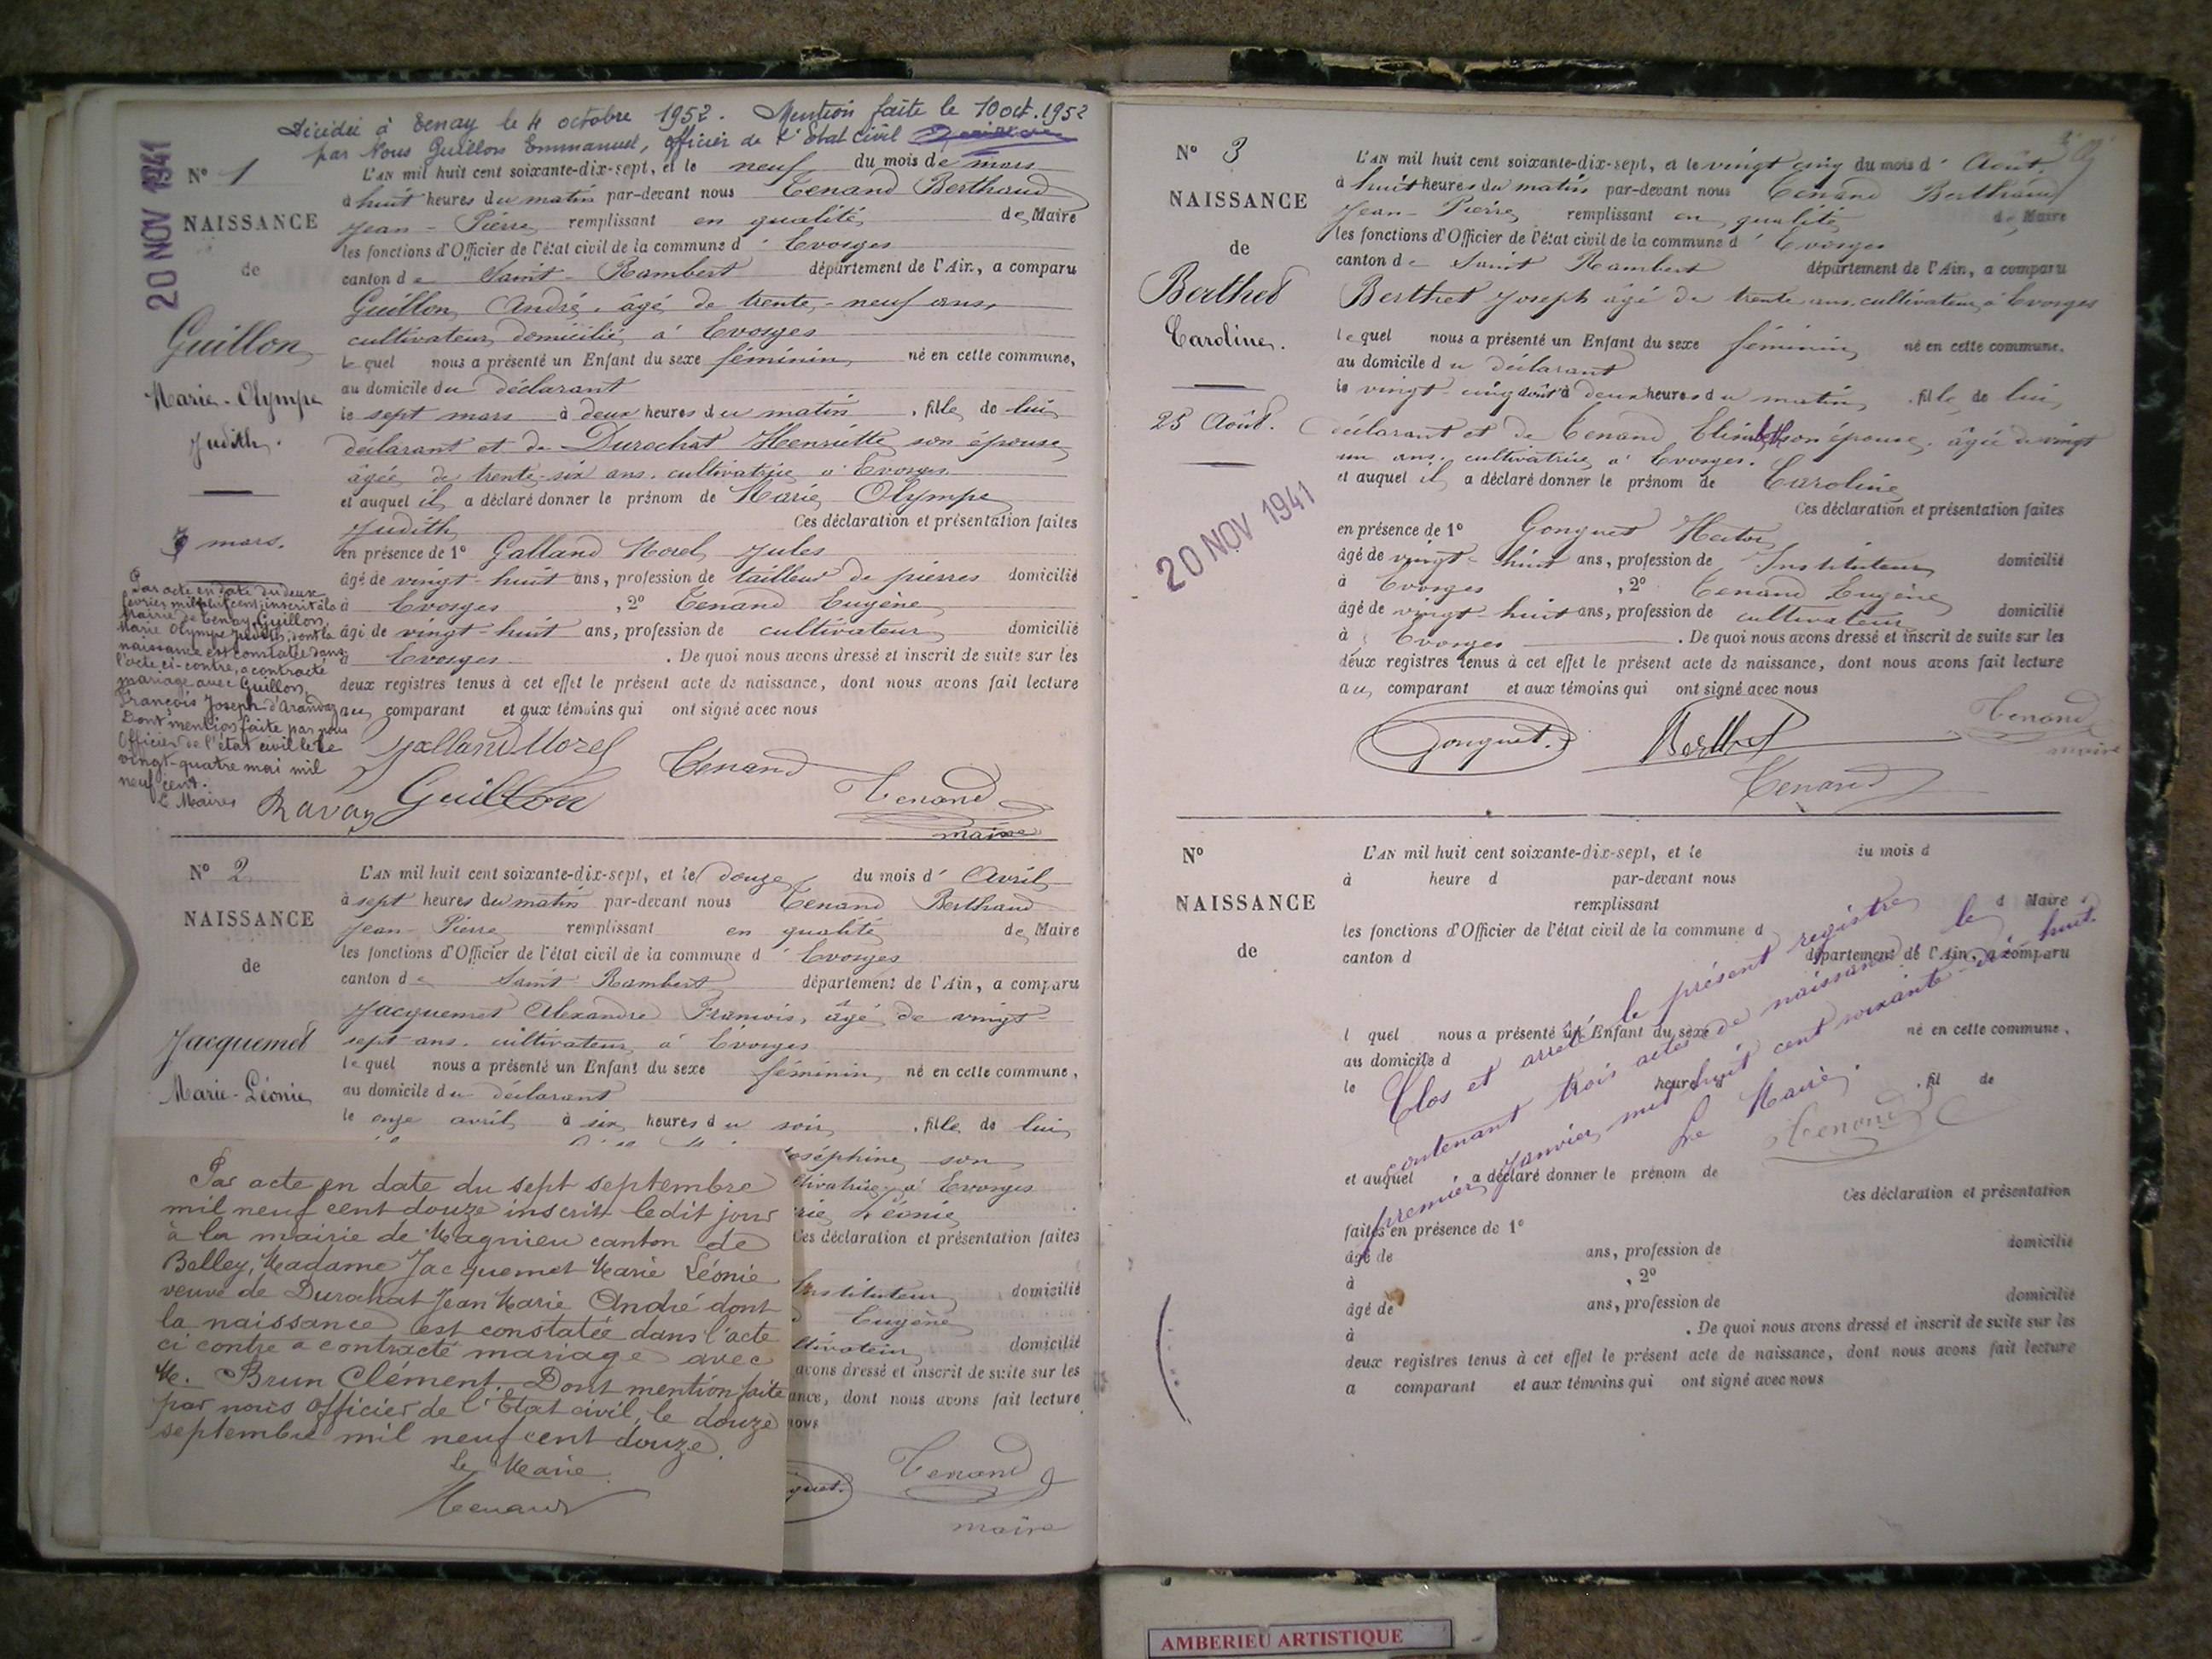 Décédée à Tenay le 4 octobre 1952. Mention faite le 10 oct. 1952
par Nous Guillon Emmanuel, officier de l'Etat civil
20 NOV 1941
N° 1
NAISSANCE
de
Guillon
Marie-Olympe
Judith.
mars.
Par acte en date du deux
février mil neuf cent, inscrit à la
mairie de Tenay, Guillon,
Marie Olympe Judith, dont la
naissance est constatée dans
l'acte ci-contre, a contracté
mariage avec Guillon,
François Joseph d'Arandas
Dont mention faite par nous
Officier de l'état civil le
vingt-quatre mai mil
neuf cent.
Le Maire
Ravaz
L'AN mil huit cent soixante-dix-sept, et le neuf du mois de mars
à huit heures du matin par-devant nous Tenand Berthaud
Jean-Pierre remplissant en qualité de Maire
les fonctions d'Officier de l'état civil de la commune d'Evosges
canton de Saint-Rambert département de l'Ain, a comparu
Guillon André, âgé de trente-neuf ans,
cultivateur, domicilié à Evosges
lequel nous a présenté un Enfant du sexe féminin, né en cette commune,
au domicile du déclarant
le sept mars à deux heures du matin, fille de lui
déclarant et de Durochat Henriette son épouse
âgée de trente-six ans, cultivatrice à Evosges
et auquel il a déclaré donner le prénom de Marie Olympe
Judith Ces déclaration et présentation faites
en présence de 1° Galland Morel Jules
âgé de vingt-huit ans, profession de tailleur de pierres domicilié
à Evosges, 2° Tenand Eugène
âgé de vingt-huit ans, profession de cultivateur domicilié
à Evosges. De quoi nous avons dressé et inscrit de suite sur les
deux registres tenus à cet effet le présent acte de naissance, dont nous avons fait lecture
au comparant et aux témoins qui ont signé avec nous
Galland Morel
Tenand
Guillon
Tenand
maire
N° 2
NAISSANCE
de
Jacquemet
Marie-Léonie
L'AN mil huit cent soixante-dix-sept, et le douze du mois d'Avril
à sept heures du matin par-devant nous Tenand Berthaud
Jean-Pierre remplissant en qualité de Maire
les fonctions d'Officier de l'état civil de la commune d'Evosges
canton de Saint-Rambert département de l'Ain, a comparu
Jacquemet Alexandre François, âgé de vingt-
sept ans, cultivateur à Evosges
lequel nous a présenté un Enfant du sexe féminin né en cette commune,
au domicile du déclarant
le onze avril à six heures du soir, fille de lui
oséphine son
ltivatrice à Evosges
rie Léonie
Ces déclaration et présentation faites
Instituteur domicilié
Eugène
ltivateur domicilié
avons dressé et inscrit de suite sur les
ance, dont nous avons fait lecture
nous
guet.
Tenand
maire
Par acte en date du sept septembre
mil neuf cent douze inscrit ledit jour
à la mairie de Magnieu canton de
Belley, Madame Jacquemet Marie Léonie
veuve de Durochat Jean Marie André dont
la naissance est constatée dans l'acte
ci contre a contracté mariage avec
M. Brun Clément. Dont mention faite
par nous officier de l'Etat civil, le douze
septembre mil neuf cent douze.
Le Maire
Tenand
N° 3
NAISSANCE
de
Berthet
Caroline.
25 Août.
20 NOV 1941
L'AN mil huit cent soixante-dix-sept, et le vingt cinq du mois d'Août
à huit heures du matin par-devant nous Tenand Berthaud
Jean-Pierre remplissant en qualité de Maire
les fonctions d'Officier de l'état civil de la commune d'Evosges
canton de Saint Rambert département de l'Ain, a comparu
Berthet Joseph âgé de trente ans, cultivateur à Evosges
lequel nous a présenté un Enfant du sexe féminin né en cette commune.
au domicile du déclarant
le vingt-cinq août à deux heures du matin, fille de lui
déclarant et de Tenand Elisabeth son épouse, âgée de vingt
un ans, cultivatrice à Evosges.
et auquel il a déclaré donner le prénom de Caroline
Ces déclaration et présentation faites
en présence de 1° Gonguet Hector
âgé de vingt-huit ans, profession de Instituteur domicilié
à Evosges, 2° Tenand Eugène
âgé de vingt-huit ans, profession de cultivateur domicilié
à Evosges. De quoi nous avons dressé et inscrit de suite sur les
deux registres tenus à cet effet le présent acte de naissance, dont nous avons fait lecture
au comparant et aux témoins qui ont signé avec nous
Gonguet.
Berthet
Tenand
maire
Tenand
N°
NAISSANCE
de
L'AN mil huit cent soixante-dix-sept, et le du mois d
à heure d par-devant nous
remplissant d Maire
les fonctions d'Officier de l'état civil de la commune d
canton d département de l'Ain, a comparu
l quel nous a présenté un Enfant du sexe né en cette commune,
au domicile d
le heure . fil de
et auquel a déclaré donner le prénom de
Ces déclaration et présentation
faites en présence de 1°
âgé de ans, profession de domicilié
à , 2°
âgé de ans, profession de domicilié
à . De quoi nous avons dressé et inscrit de suite sur les
deux registres tenus à cet effet le présent acte de naissance, dont nous avons fait lecture
a comparant et aux témoins qui ont signé avec nous
Clos et arrêté le présent registre
contenant trois actes de naissance le
premier janvier mil huit cent soixante-dix-huit.
Le Maire.
Tenand
AMBERIEU ARTISTIQUE